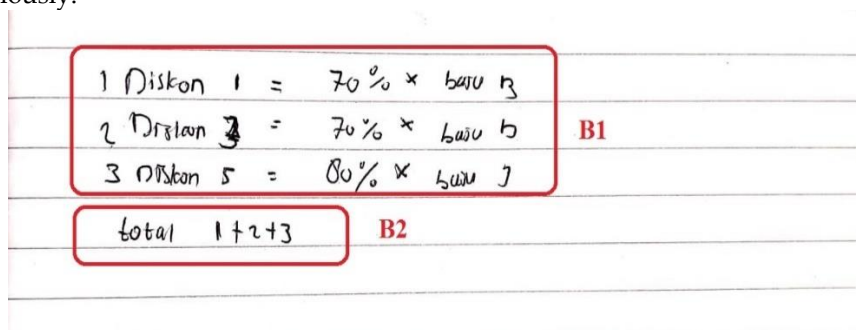 iously.
1 Diskon 1 = 70% × baju B
2 Diskon 3 = 70% × baju D
3 Diskon 5 = 80% × baju J
B1
total 1+2+3
B2